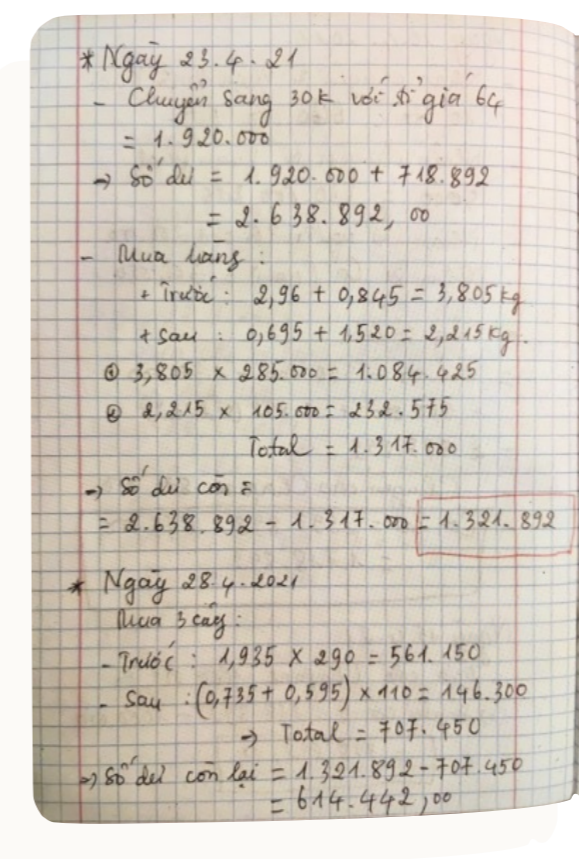 * Ngày 23.4.21
- Chuyển sang 30k với tỉ giá 64
= 1.920.000
→ Số dư = 1.920.000 + 718.892
= 2.638.892,00
- Mua hàng :
+ Trước : 2,96 + 0,845 = 3,805 kg
+ Sau : 0,695 + 1,520 = 2,215 kg.
① 3,805 × 285.000 = 1.084.425
② 2,215 × 105.000 = 232.575
Total = 1.317.000
→ Số dư còn =
= 2.638.892 - 1.317.000 = 1.321.892
* Ngày 28.4.2021
Mua 3 cây :
- Trước : 1,935 × 290 = 561.150
- Sau : (0,735 + 0,595) × 110 = 146.300
→ Total = 707.450
→ Số dư còn lại = 1.321.892 - 707.450
= 614.442,00